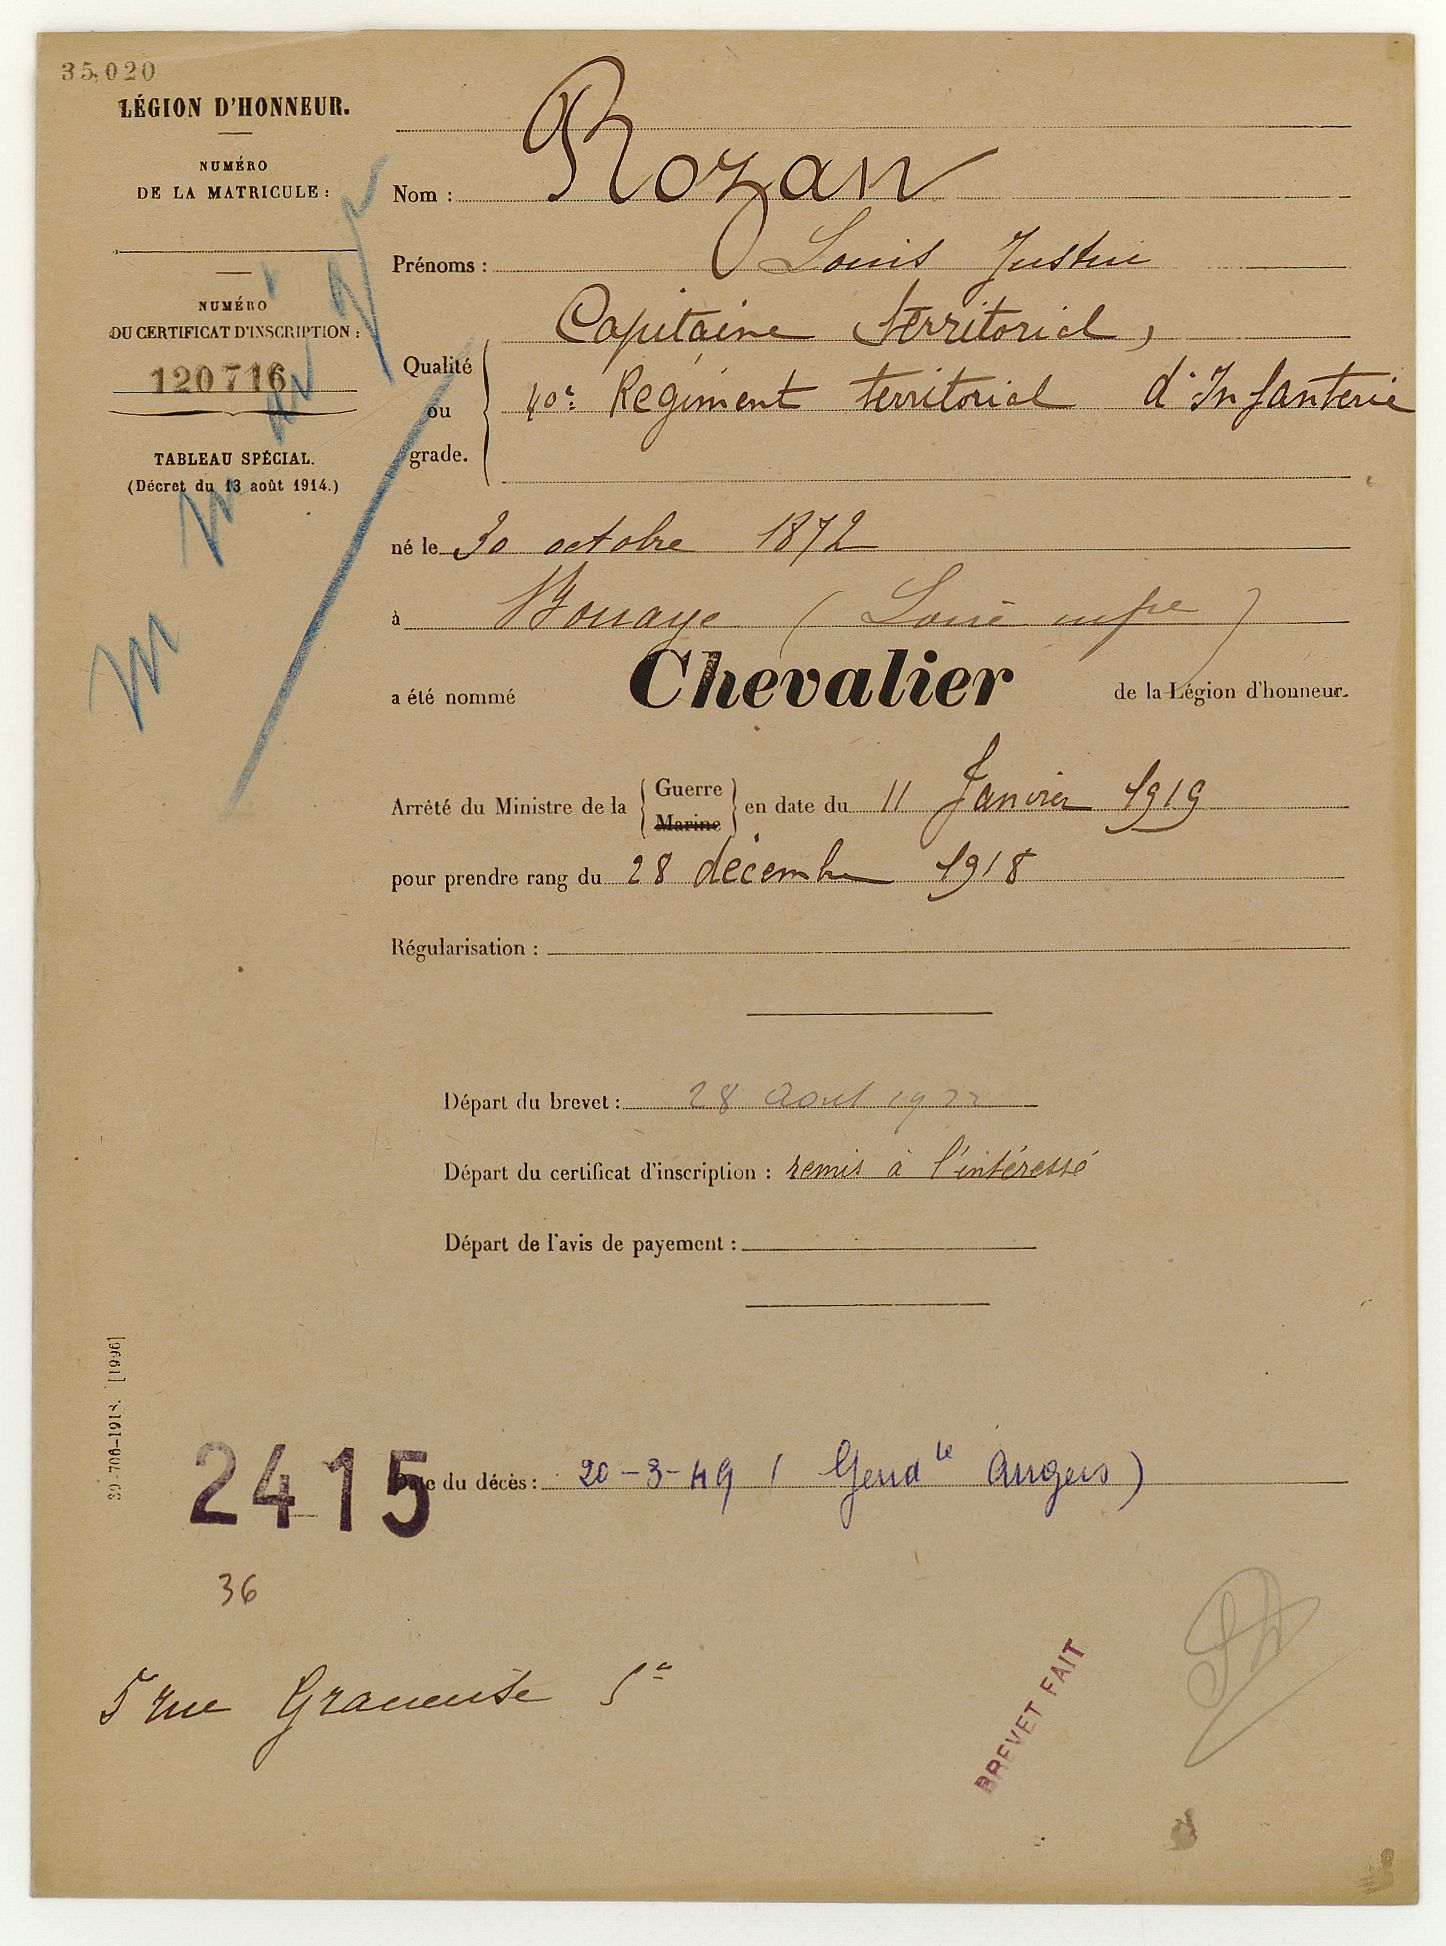 35,020
LÉGION D'HONNEUR.
NUMÉRO
DE LA MATRICULE :
NUMÉRO
DU CERTIFICAT D'INSCRIPTION :
120716
TABLEAU SPÉCIAL.
(Décret du 13 août 1914.)
Nom : Rozan
Prénoms : Louis Justin
Qualité
ou
grade.
Capitaine territorial,
40e Régiment territorial d'Infanterie
né le 30 octobre 1872
à Bouaye (Loire infre)
a été nommé Chevalier de la Légion d'honneur.
Arrêté du Ministre de la { Guerre Marine } en date du 11 Janvier 1919
pour prendre rang du 28 décembre 1918
Régularisation :
Départ du brevet : 28 Aout 1922
Départ du certificat d'inscription : remis à l'intéressé
Départ de l'avis de payement :
[1996]
2415
Date du décès : 20-3-49 (Gendle Angers)
36
5 rue
BREVET FAIT